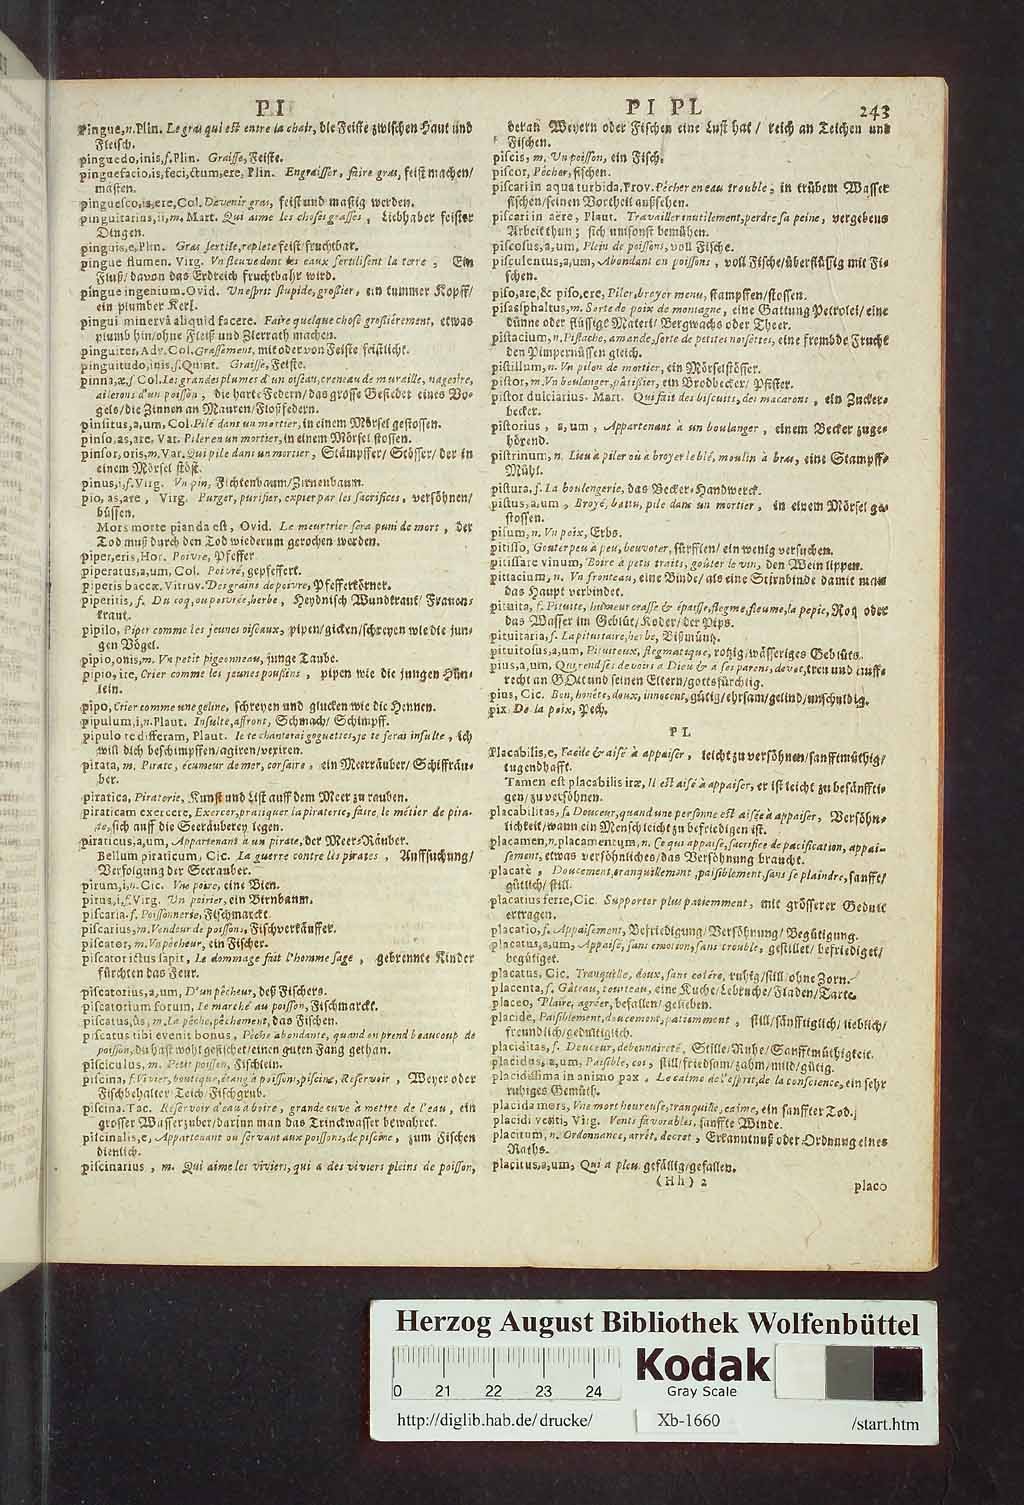 PI
pingue, n. Plin. Le gras qui est entre la chair, die Feiste zwischen Haut und
Fleisch.
pinguedo, inis, f. Plin. Graisse, Feiste.
pinguefacio, is, feci, ctum, ere, Plin. Engraisser, faire gras, feist machen/
masten.
pinguesco, is, ere, Col. Devenir gras, feist und mastig werden.
pinguitarius, ii, m. Mart. Qui aime les choses grasses, Liebhaber feister
Dingen.
pinguis, e, Plin. Gras fertile, replete feist fruchtbar.
pingue flumen. Virg. Un fleuve dont les eaux fertilisent la terre, Ein
Fluß/ davon das Erdreich fruchtbahr wird.
pingue ingenium. Ovid. Un esprit stupide, grossier, ein tummer Kopff/
ein plumber Kerl.
pingui minervâ aliquid facere. Faire quelque chose grossiérement, etwas
plumb hin/ohne Fleiß und Zierrath machen.
pinguiter, Adv. Col. Grassement, mit oder von Feiste feistlicht.
pinguitudo, inis, f. Quint. Graisse, Feiste.
pinna, æ, f Col. Les grandes plumes d'un oiseau, creneau de muraille, nageoire,
ailerons d'un poisson, die harte Federn/das grosse Gefieder eines Vo-
gels/die Zinnen an Mauren/Floßfedern.
pinsitus, a, um, Col. Pilé dans un mortier, in einem Mörsel gestossen.
pinso, as, are, Var. Piler en un mortier, in einem Mörsel stossen.
pinsor, oris, m. Var. Qui pile dans un mortier, Stämpffer/ Stösser/ der in
einem Mörsel stöst.
pinus, i, f. Virg. Un pin, Fichtenbaum/Zirnenbaum.
pio, as, are, Virg. Purger, purifier, expier par les sacrifices, versöhnen/
büssen.
Mors morte pianda est, Ovid. Le meurtrier sera puni de mort, der
Tod muß durch den Tod wiederum gerochen werden.
piper, eris, Hor. Poivre, Pfeffer
piperatus, a, um, Col. Poivré, gepfeffert.
piperis baccæ. Vitruv. Des grains de poivre, Pfefferkörner.
piperitis, f. Du coq, ou poivrée, herbe, Heydnisch Wundkraut/ Frauen-
kraut.
pipilo, Piper comme les jeunes oiseaux, pipen/gicken/schreyen wie die jun-
gen Vögel.
pipio, onis, m. Un petit pigeonneau, junge Taube.
pipio, ire, Crier comme les jeunes poussins, pipen wie die jungen Hün-
lein.
pipo, Crier comme une geline, schreyen und glucken wie die Hennen.
pipulum, i, n. Plaut. Insulte, affront, Schmach/ Schimpff.
pipulo te differam, Plaut. Je te chanterai goguettes, je te ferai insulte, ich
will dich beschimpffen/agiren/vexiren.
pirata, m. Pirate, écumeur de mer, corsaire, ein Meerräuber/ Schiffräu-
ber.
piratica, Piraterie, Kunst und List auff dem Meer zu rauben.
piraticam exercere, Exercer, pratiquer la piraterie, faire le métier de pira-
te, sich auff die Seeräuberey legen.
piraticus, a, um, Appartenant à un pirate, der Meer-Räuber.
Bellum piraticum, Cic. La guerre contre les pirates, Auffsuchung/
Verfolgung der Seerauber.
pirum, i, n. Cic. Une poire, eine Bien.
pirus, i, f. Virg. Un poirier, ein Birnbaum.
piscaria. f. Poissonnerie, Fischmarckt.
piscarius, m. Vendeur de poissons, Fischverkäuffer.
piscator, m. Un pêcheur, ein Fischer.
piscator ictus sapit, Le dommage fait l'homme sage, gebrennte Kinder
fürchten das Feur.
piscatorius, a, um, D'un pêcheur, deß Fischers.
piscatorium forum, Le marché au poisson, Fischmarckt.
piscatus, ûs, m. La pêche, pêchement, das Fischen.
piscatus tibi evenit bonus, Pêche abondante, quand on prend beaucoup de
poisson, du hast wohl gefischet/einen guten Fang gethan.
pisciculus, m. Petit poisson, Fischlein.
piscina, f. Vivier, boutique, étang à poissons, piscine, Reservoir, Weyer oder
Fischbehalter Teich/Fischgrub.
piscina. Tac. Reservoir d'eau à boire, grande cuve à mettre de l'eau, ein
grosser Wasserzuber/darinn man das Trinckwasser bewahret.
piscinalis, e, Appartenant ou servant aux poissons, de piscine, zum Fischen
dienlich.
piscinarius, m. Qui aime les viviers, qui a des viviers pleins de poisson,
PI PL
243
deran Weyern oder Fischen eine Lust hat/ reich an Teichen und
Fischen.
piscis, m. Un poisson, ein Fisch.
piscor, Pêcher, fischen.
piscari in aqua turbida, Prov. Pêcher en eau trouble, in trübem Wasser
fischen/seinen Vortheil auffsehen.
piscari in aëre, Plaut. Travailler inutilement, perdre sa peine, vergebens
Arbeit thun; sich umsonst bemühen.
piscosus, a, um, Plein de poissons, voll Fische.
pisculentus, a, um, Abondant en poissons, voll Fische/überflüßig mit Fi-
schen.
piso, are, & piso, ere, Piler, broyer menu, stampffen/stossen.
pisasphaltus, m. Sorte de poix de montagne, eine Gattung Petrolei/eine
dünne oder flüssige Materi/ Bergwachs oder Theer.
pistacium, n. Pistache, amande, sorte de petites noisettes, eine frembde Frucht
den Pimpernüssen gleich.
pistillum, n. Un pilon de mortier, ein Mörselstösser.
pistor, m. Un boulanger, pâtissier, ein Brodbecker/ Pfister.
pistor dulciarius. Mart. Qui fait des biscuits, des macarons, ein Zucker-
becker.
pistorius, a, um, Appartenant à un boulanger, einem Becker zuge-
hörend.
pistrinum, n. Lieu à piler où à broyer le blé, moulin à bras, eine Stampff-
Mühl.
pistura, f. La boulengerie, das Becker-Handwerck.
pistus, a, um, Broyé, battu, pilé dans un mortier, in einem Mörsel ge-
stossen.
pisum, n. Un poix, Erbs.
pitisso, Gouter peu à peu, beuvoter, sürfflen/ ein wenig versuchen.
pitissare vinum, Boire à petits traits, goûter le vin, den Wein lippen.
pittacium, n. Un fronteau, eine Binde/ als eine Stirnbinde damit man
das Haupt verbindet.
pituita, f. Pituite, humeur crasse & épaisse, flegme, fleume, la pepie, Rotz oder
das Wasser im Geblüt/Koder/der Pips.
pituitaria, f. La pituitaire, herbe, Bißmüntz.
pituitosus, a, um, Pituiteux, flegmatique, rotzig/wässeriges Geblüts.
pius, a, um, Qui rend ses devoirs à Dieu & à ses parens, devot, treu und auff-
recht an GOtt und seinen Eltern/gottsfürchtig.
pius, Cic. Bon, honête, doux, innocent, gütig/ehrsam/gelind/unschuldig.
pix. De la poix, Pech.
PL
Placabilis, e, Facile & aisé à appaiser, leicht zu versöhnen/sanfftmüthig/
tugendhafft.
Tamen est placabilis iræ, Il est aisé à appaiser, er ist leicht zu besänffti-
gen/zu versöhnen.
placabilitas, f. Douceur, quand une personne est aisée à appaiser, Versöhn-
lichkeit/wann ein Mensch leicht zu befriedigen ist.
placamen, n. placamentum, n. Ce qui appaise, sacrifice de pacification, appai-
sement, etwas versöhnliches/das Versöhnung braucht.
placatè, Doucement, tranquillement, paisiblement, sans se plaindre, sanfft/
gütlich/still.
placatius ferre, Cic. Supporter plus patiemment, mit grösserer Gedult
ertragen.
placatio, f. Appaisement, Befriedigung/Versöhnung/Begütigung.
placatus, a, um, Appaisé, sans emotion, sans trouble, gestillet/befriediget/
begütiget.
placatus, Cic. Tranquille, doux, sans colére, ruhig/still/ohne Zorn.
placenta, f. Gâteau, tourteau, eine Kuche/Lebkuche/Fladen/Tarte.
placeo, Plaire, agréer, befallen/ gelieben.
placidè, Paisiblement, doucement, patiemment, still/sänfftiglich/lieblich/
freundlich/gedultiglich.
placiditas, f. Douceur, debonnaireté, Stille/Ruhe/Sanfftmüthigkeit.
placidus, a, um, Paisible, coi, still/friedsam/zahm/mild/gütig.
placidissima in animo pax, Le calme de l'esprit, de la conscience, ein sehr
ruhiges Gemüth.
placida mors, Une mort heureuse, tranquille, calme, ein sanffter Tod.
placidi venti, Virg. Vents favorables, sanffte Winde.
placitum, n. Ordonnance, arrêt, decret, Erkanntnuß oder Ordnung eines
Raths.
placitus, a, um, Qui a pleu, gefällig/gefallen.
(Hh) 2
placo
Herzog August Bibliothek Wolfenbüttel
0 21 22 23 24
Kodak
Gray Scale
http://diglib.hab.de/drucke/
Xb-1660
/start.htm